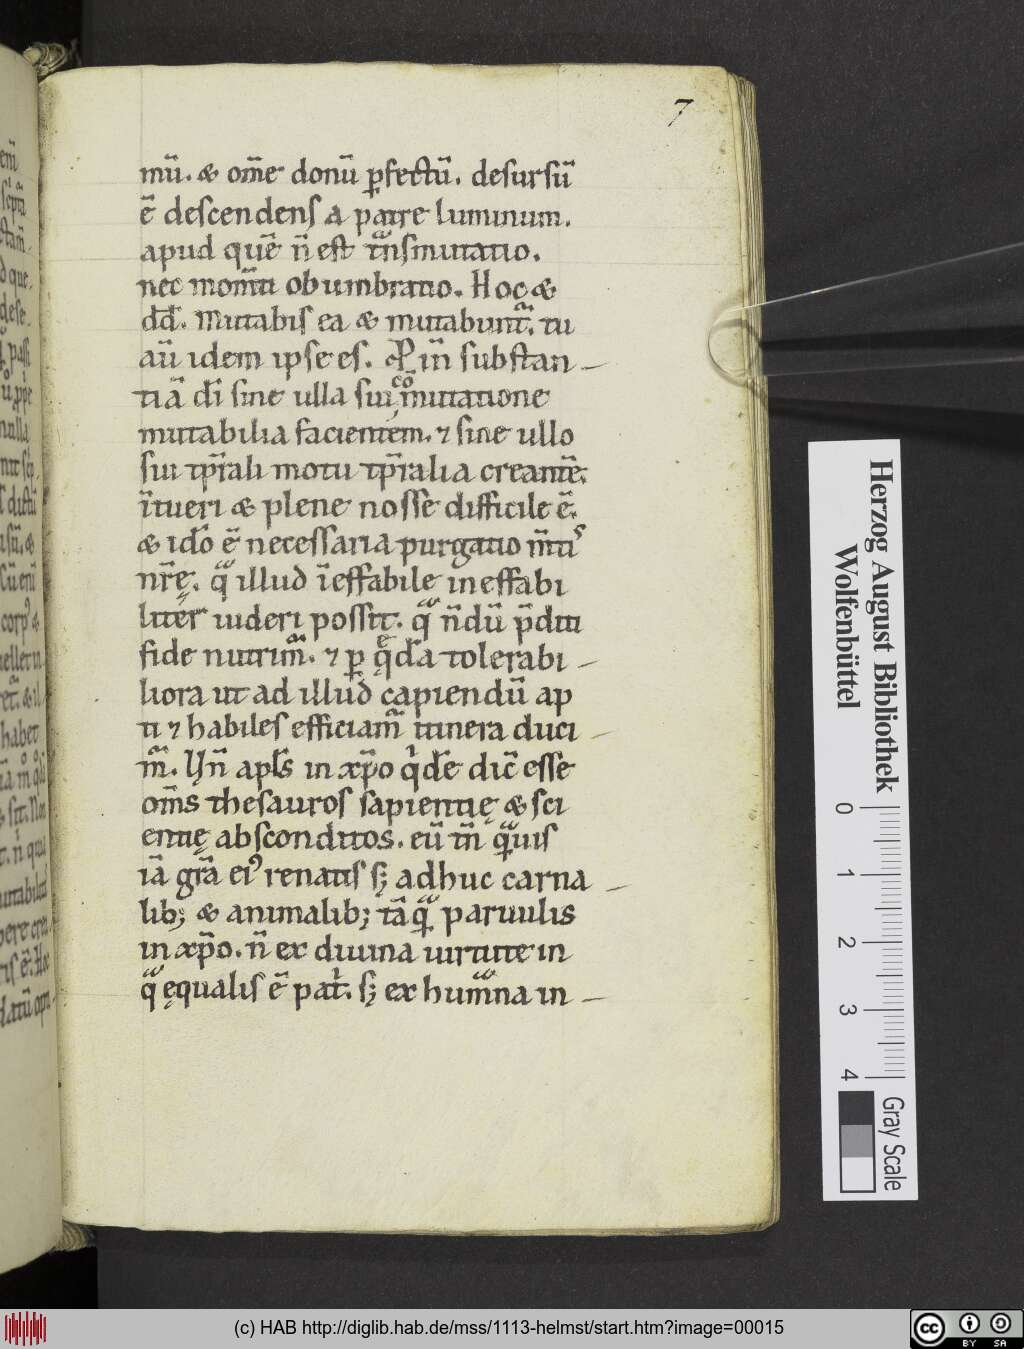 7
mū. & om̄e donū ꝑfectū. desursū
ē descendens a patre luminum.
apud quē n̄ est tͣnsmutatio.
nec mom̄ti obumbratio. Hoc &
dd̄. Mutabis ea & mutabunt᷑. tu
aū idem ipse es. P̱ īn substan–
tiā dī sine ulla sui cō mutatione
mutabilia facientem. ⁊ sine ullo
sui tp̄rali motu tp̄ralia creantē.
ītueri & plene nosse difficile ē.
& idō ē necessaria purgatio m̄tiˢ
nr̄ę. qͣ illud īeffabile ineffabi
liter uideri possit. qͣ n̄dū p̄diti
fide nutrim᷑. ⁊ ꝑ qędā tolerabi–
liora ut ad illud capiendū ap
ti ⁊ habiles efficiam᷑ itinera duci–
m᷑. Hn̄ apl̄s in xp̄o qͥdē dic̄ esse
om̄s thesauros sapientię & sci
entię absconditos. eū tn̄ qͣuis
iā grā eiꝰ renatis sꝫ adhuc carna–
libꝫ & animalibꝫ tāqͣ paruulis
in xp̄o. n̄ ex diuina uirtute in
qͣ ęqualis ē patͥ. sꝫ ex humͣna in–
em̄
ctam̄
d que.
dese.
pass
nulla
dictū
sū. &
corpꝰ &
uellet in
& il
habet
n̄ qui
utabilit
Herzog August Bibliothek
Wolfenbüttel
0 1 2 3 4
Gray Scale
(c) HAB http://diglib.hab.de/mss/1113-helmst/start.htm?image=00015
cc BY SA